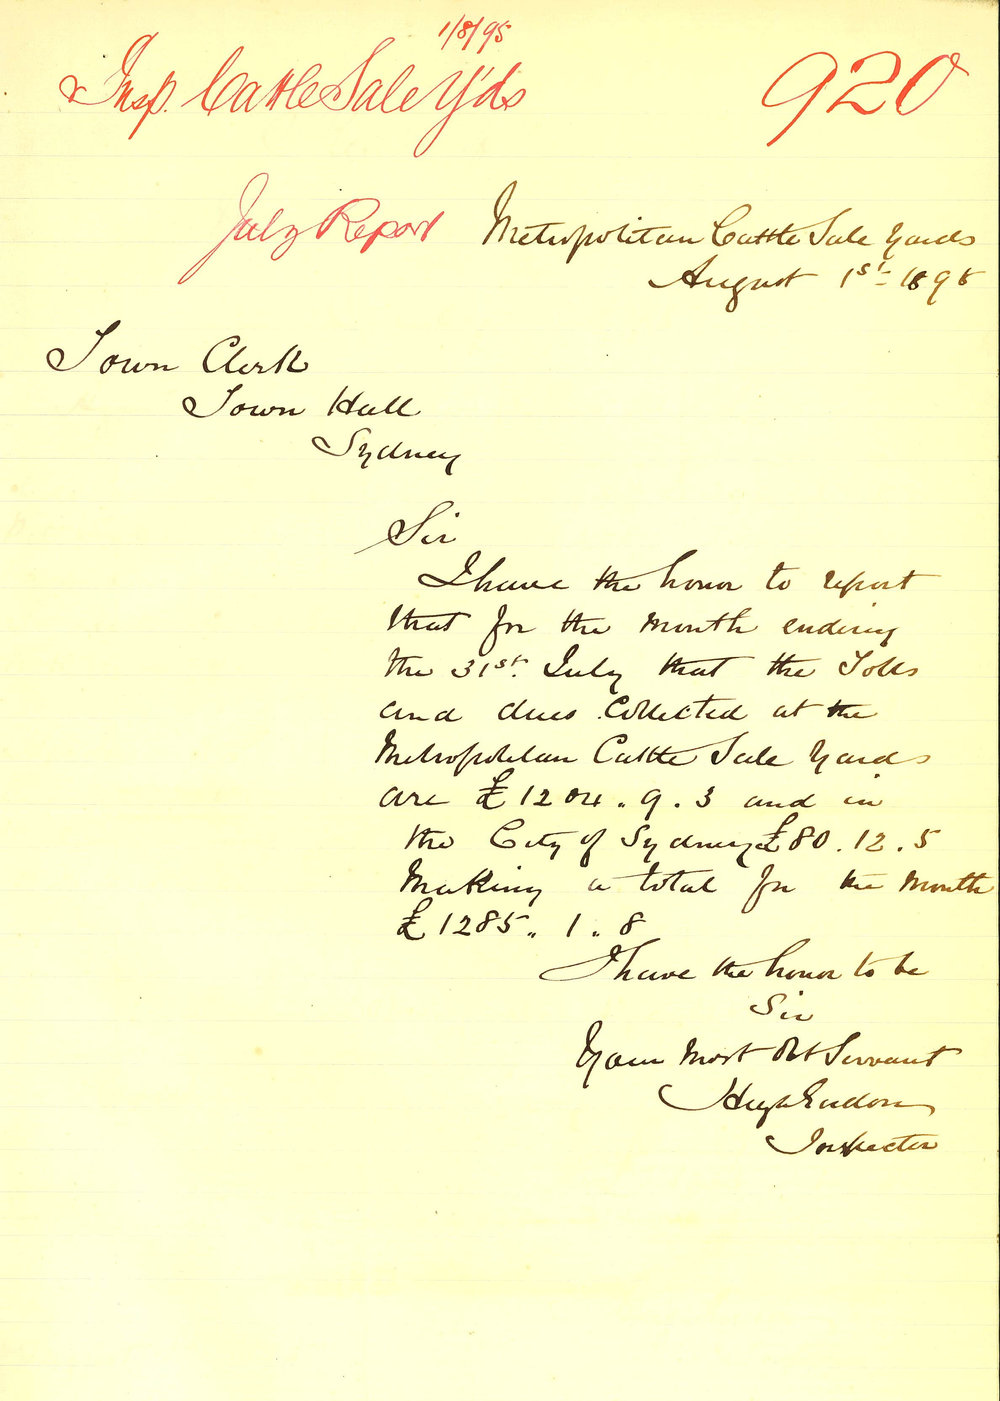 1/8/95
Insp. Cattle Sale Y'ds
920
July Report
Metropolitan Cattle Sale Yards
August 1st 1895
Town Clerk
Town Hall
Sydney
Sir
I have the honor to report
that for the month ending
the 31st. July that the Tolls
and dues collected at the
Metropolitan Cattle Sale Yards
are £1204.9.3 and in
the City of Sydney £80.12.5
Making a total for the month
£1285.1.8
I have the honor to be
Sir
Your Most Obt Servant
Hugh
Inspector